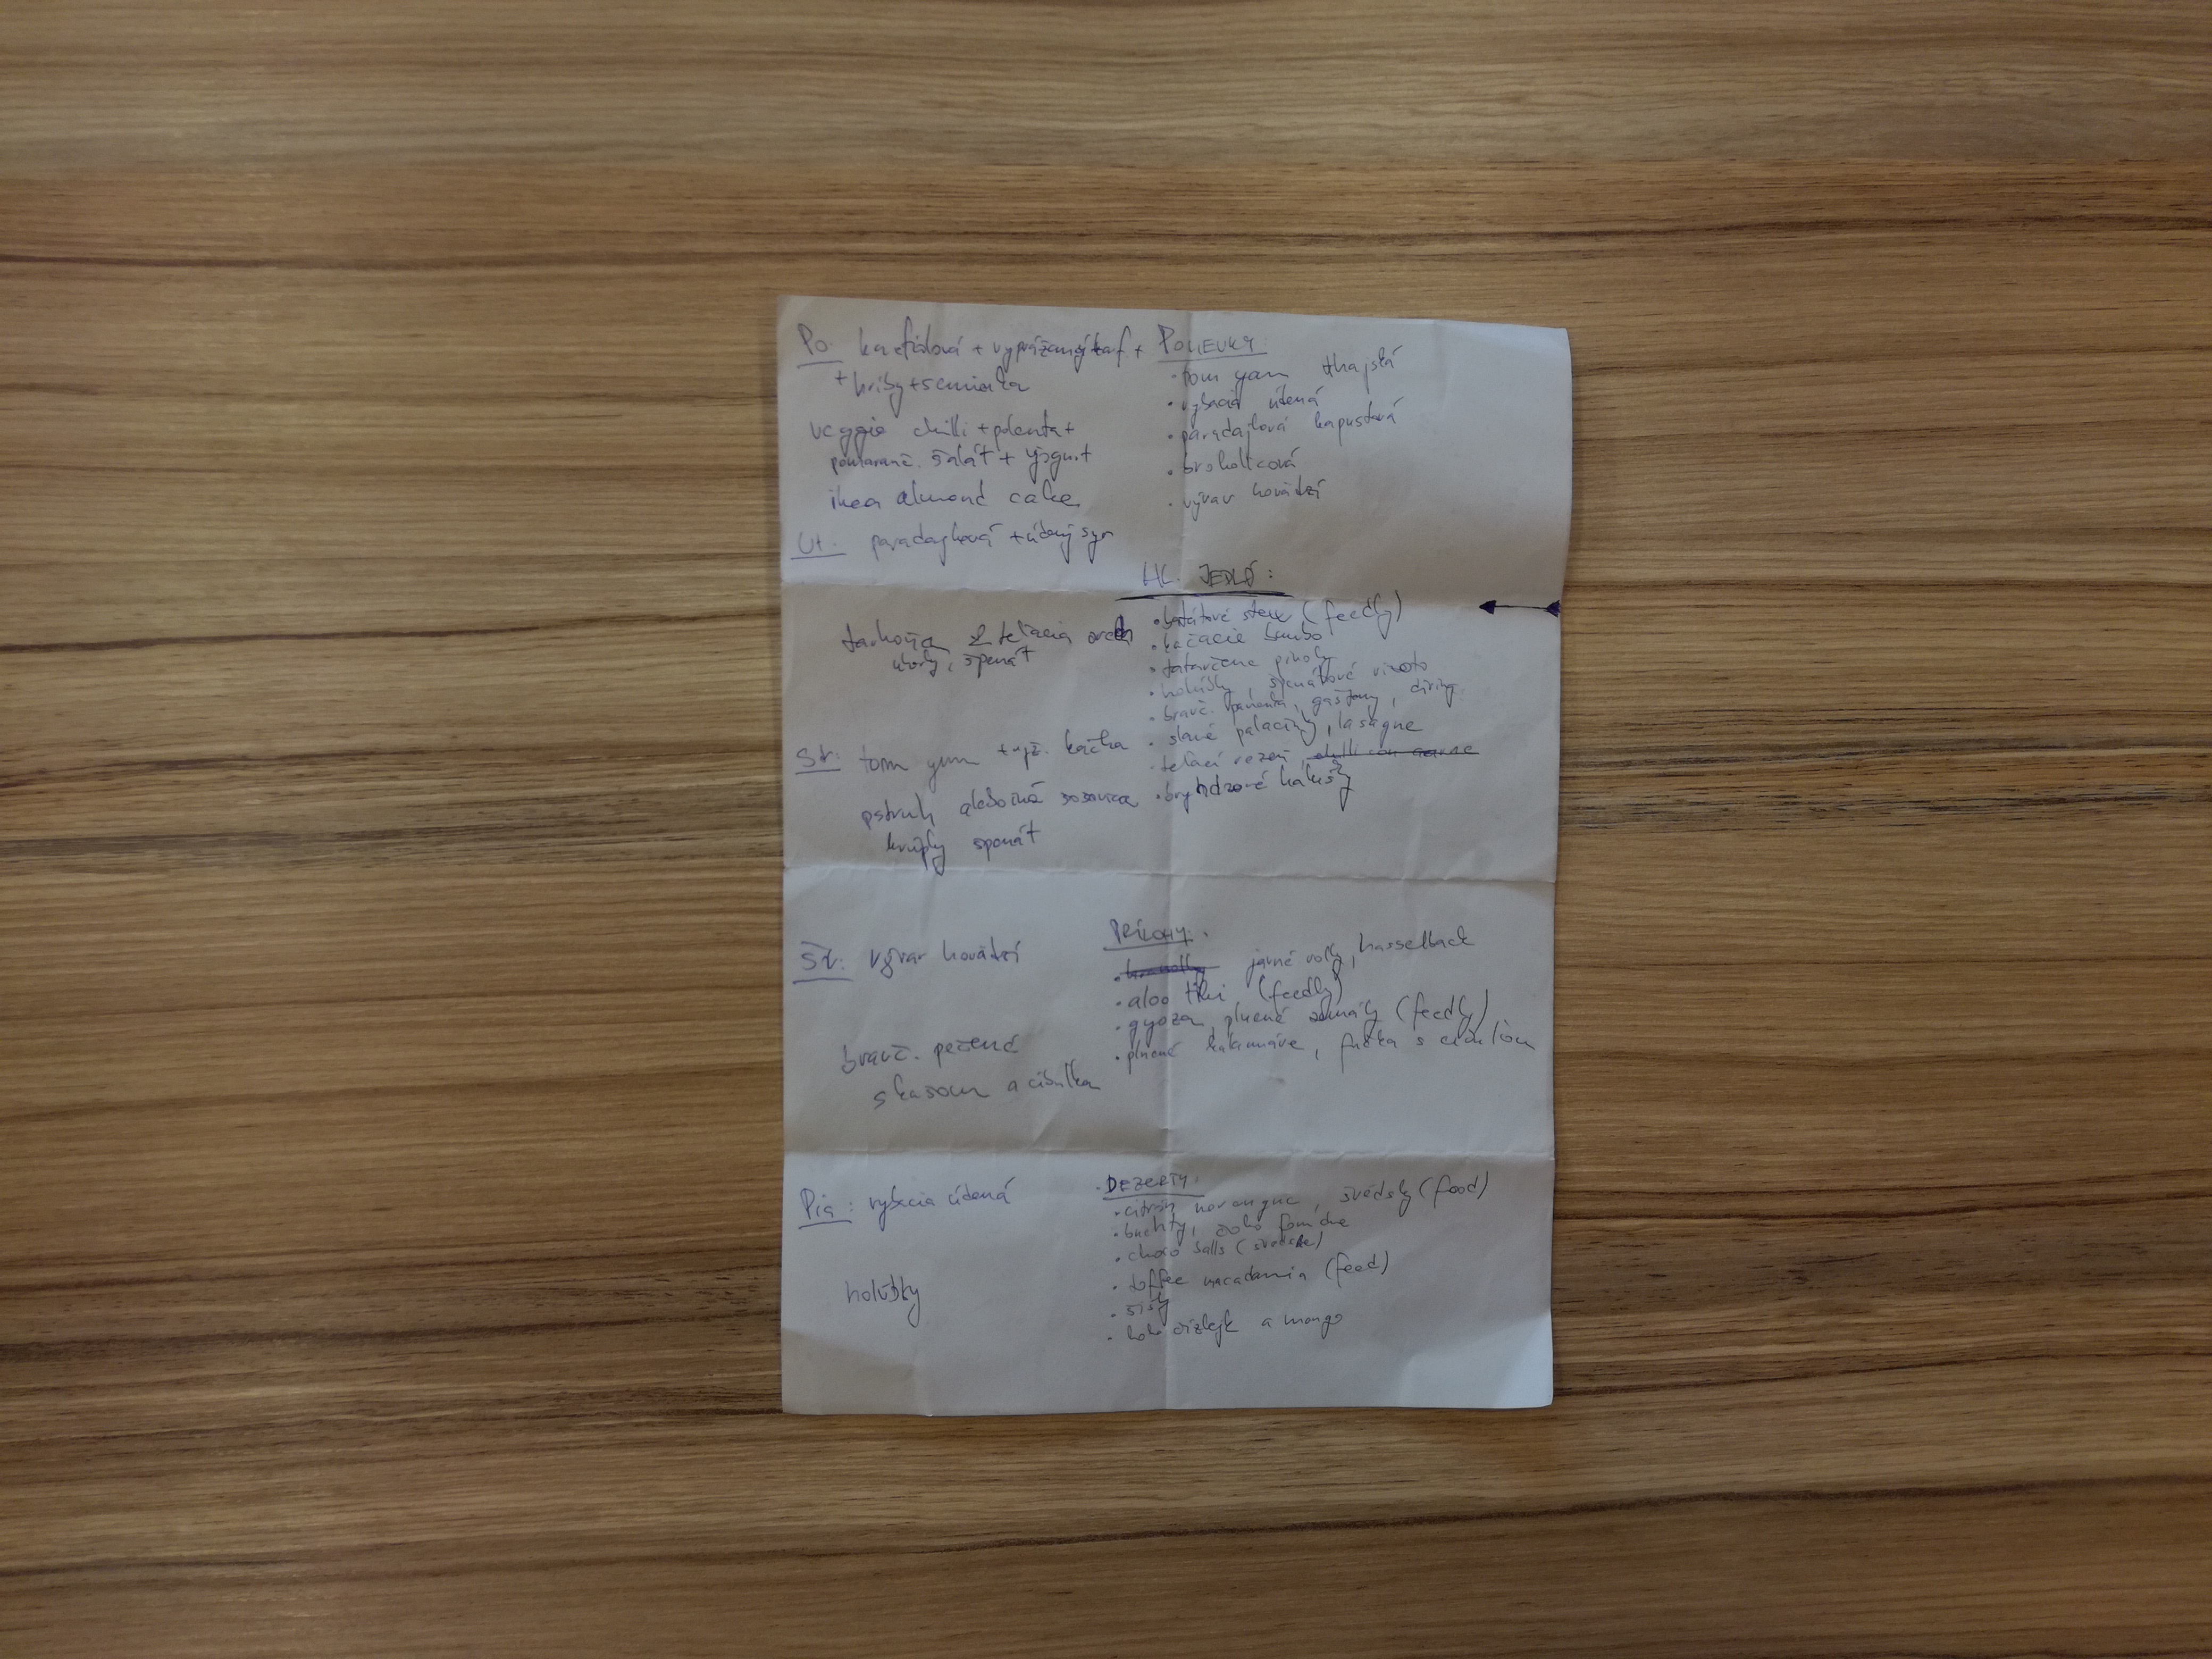 Po: karfiolová + vyprážaný karf. +
+ hríby + semiačka
veggie chilli + polenta +
pomaranč. šalát + jogurt
ikea almond cake
Ut. paradajková + údený syr
tarhoňa teľacia
uhorky, špenát
Str: tom yum + kačka
pstruh alebo iná
krúpky špenát
Št: vývar hovädzí
bravč. pečené
s kašou a cibuľka
Pia: rybacia údená
holúbky
POLIEVKY:
· tom yam thajská
· rybacia údená
· paradajková kapustová
· brokolicová
· vývar hovädzí
HL. JEDLÁ:
· batátové stew (feedly)
· kačacie bambo
· tatarčene pirohy
· holúbky, špenátové rizoto
· bravč. panenka, gaštany,
· slané palacinky, lasagne
· teľací rezeň, chilli con carne
· bryndzové halušky
PRÍLOHY:
· hranolky jarné rolky, hasselback
· aloo tikki (feedly)
· gyoza, plnené zemiaky (feedly)
· plnené kalamáre, fučka s
· DEZERTY:
· citrón meringue, švédsky (food)
· buchty, čoko fondue
· choco balls (švédske)
· toffee macadamia (feed)
· šišky
· čízkejk a mango